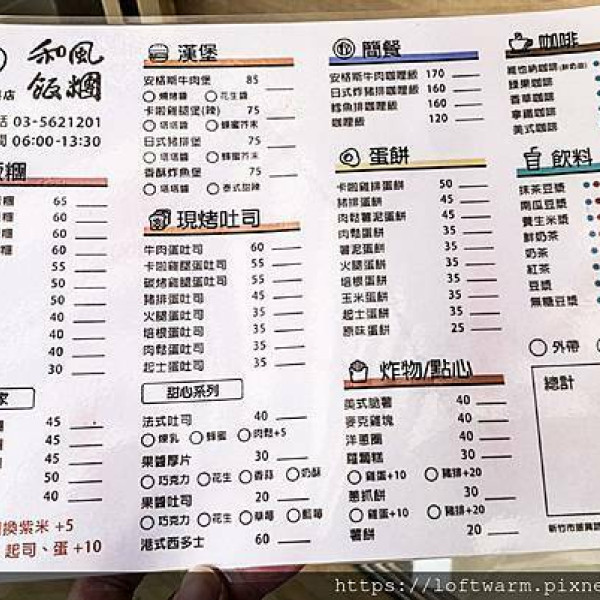 和風
飯糰
店
話 03-5621201
間 06:00-13:30
飯糰
糰 65
糰 60
糰 60
糰 60
55
55
50
50
40
40
40
30
家
45
45
50
50
40
換紫米 +5
起司、蛋 +10
漢堡
安格斯牛肉堡 85
燒烤醬 花生醬
卡啦雞腿堡(辣) 75
塔塔醬 蜂蜜芥末
日式豬排堡 75
塔塔醬 蜂蜜芥末
香酥炸魚堡 75
塔塔醬 泰式甜辣
現烤吐司
牛肉蛋吐司 60
卡啦雞腿蛋吐司 55
碳烤雞腿蛋吐司 55
豬排蛋吐司 45
火腿蛋吐司 35
培根蛋吐司 35
肉鬆蛋吐司 35
起士蛋吐司 35
甜心系列
法式吐司 40
煉乳 蜂蜜 肉鬆+5
果醬厚片 30
巧克力 花生 香蒜 奶酥
果醬吐司 20
巧克力 花生 草莓 藍莓
港式西多士 60
簡餐
安格斯牛肉咖哩飯 170
日式炸豬排咖哩飯 160
鱈魚排咖哩飯 160
咖哩飯 120
蛋餅
卡啦雞排蛋餅 50
豬排蛋餅 45
肉鬆薯泥蛋餅 45
肉鬆蛋餅 35
薯泥蛋餅 35
火腿蛋餅 35
培根蛋餅 35
玉米蛋餅 35
起士蛋餅 35
原味蛋餅 25
炸物/點心
美式脆薯 40
麥克雞塊 40
洋蔥圈 40
蘿蔔糕 30
雞蛋+10 豬排+20
蔥抓餅 30
雞蛋+10 豬排+20
薯餅 20
咖啡
維也納咖啡(鮮奶油)
榛果咖啡
香草咖啡
拿鐵咖啡
美式咖啡
飲料
抹茶豆漿
南瓜豆漿
養生米漿
鮮奶茶
奶茶
紅茶
豆漿
無糖豆漿
外帶
總計
新竹市
https://loftwarm.pixne